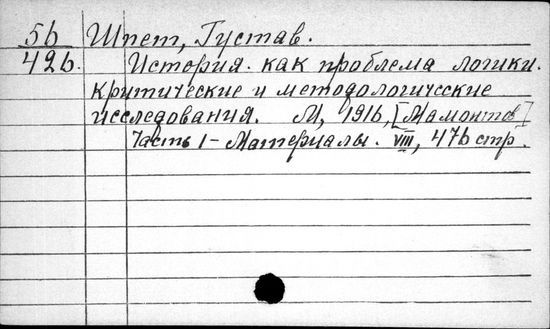 56 Шпет, Густав.
426. История как проблема логики.
Критические и методологические
исследования. М, 1916, [Мамонтов]
Часть 1 - Материалы. VIII, 476 стр.